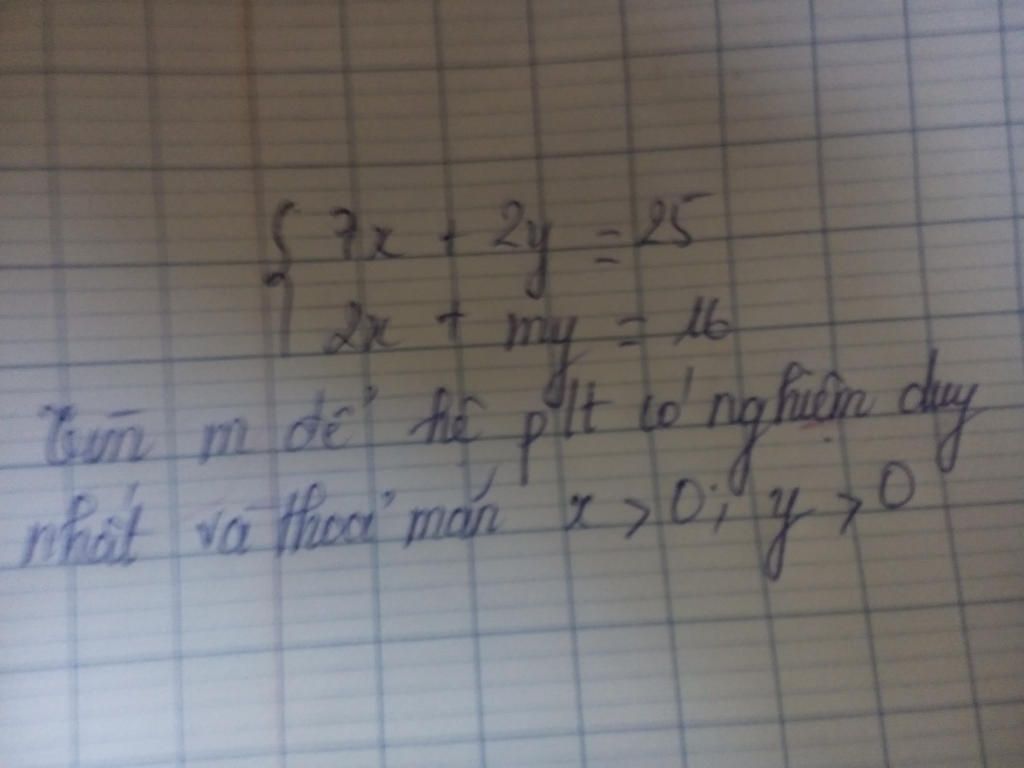 7x + 2y = 25
2x + my = 16
Tìm m để hệ pt có nghiệm duy
nhất và thoả mãn x > 0; y > 0